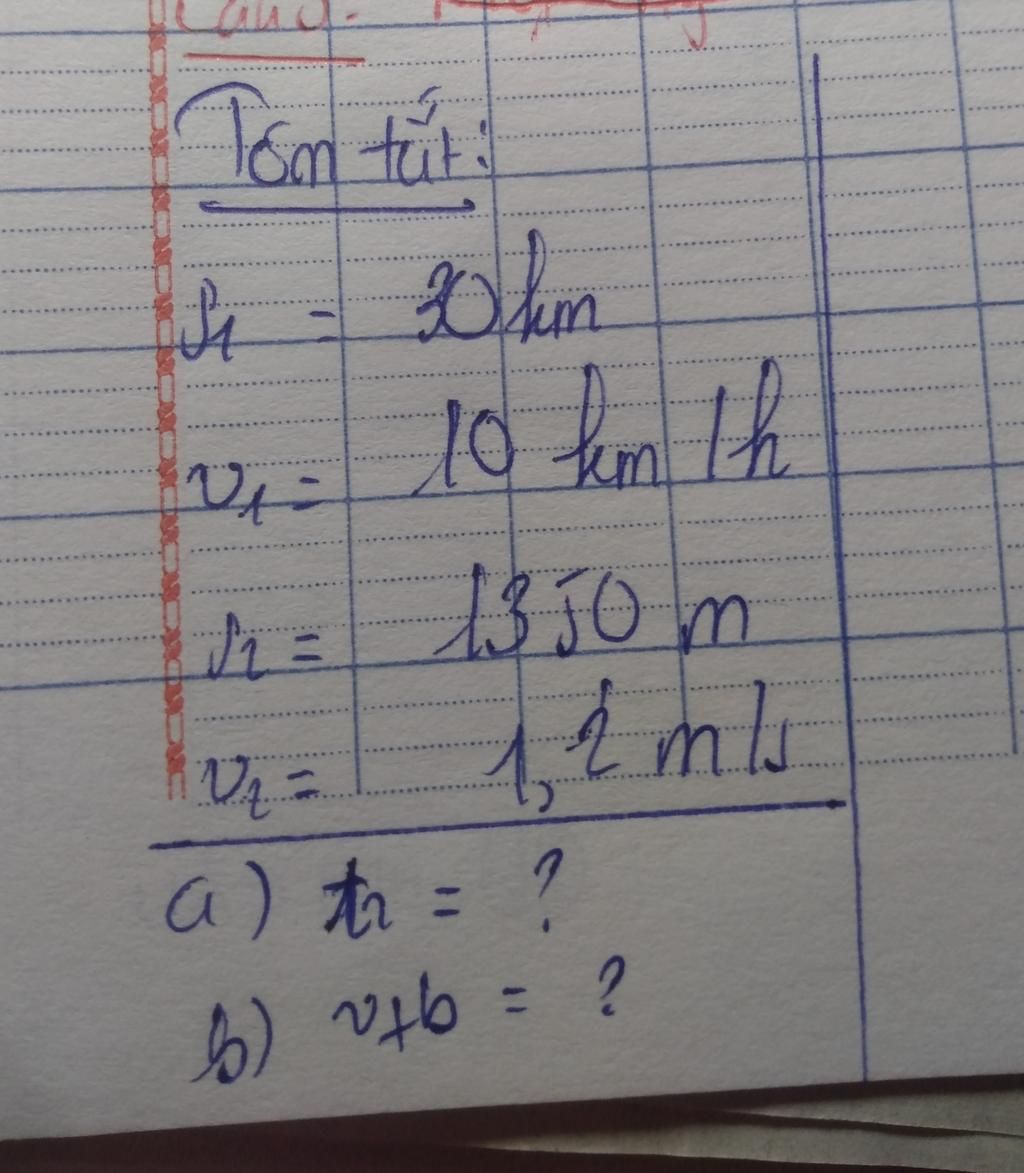 Tóm tắt:
s1 = 30 km
v1 = 10 km/h
s2 = 1350 m
v2 = 1,2 m/s
a) t2 = ?
b) vtb = ?